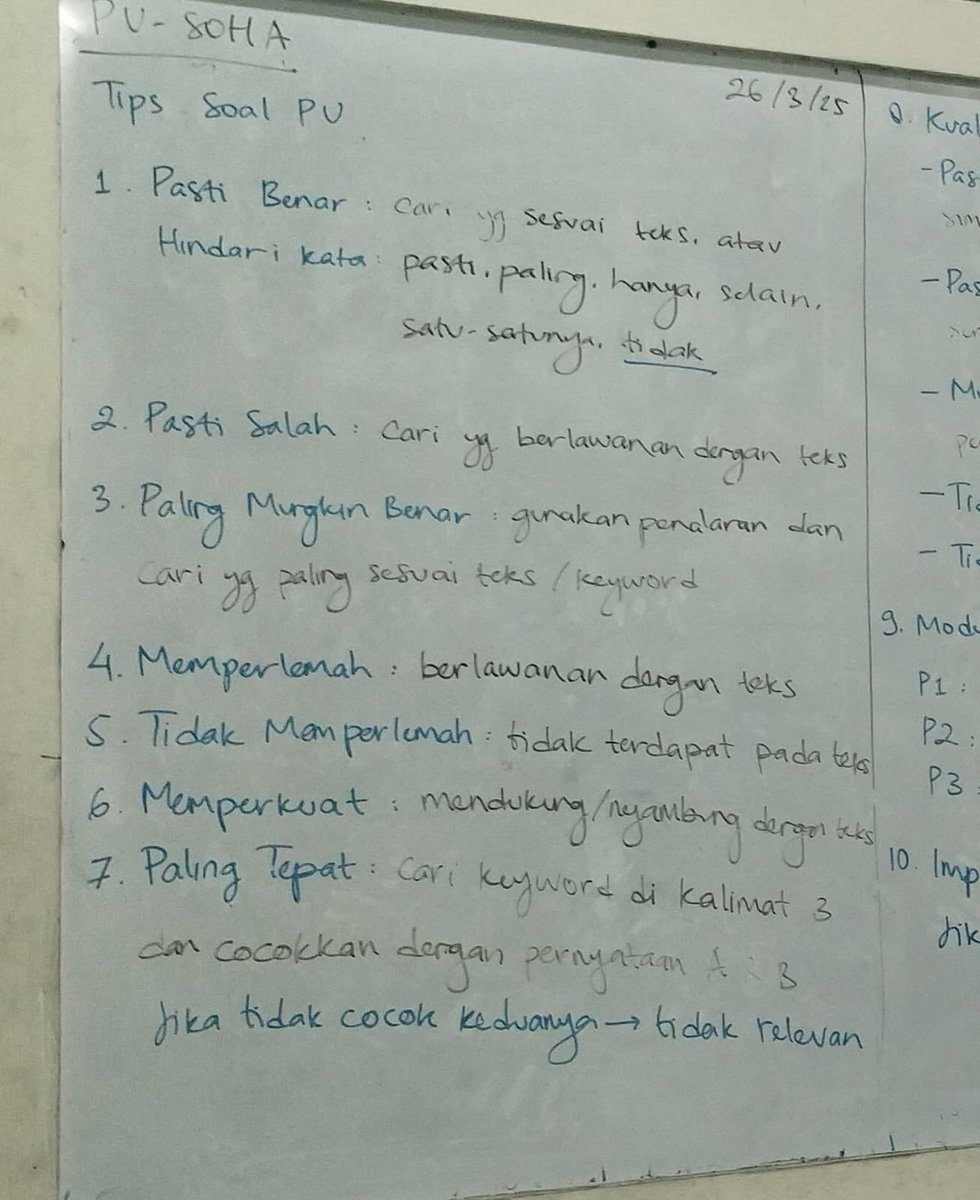 PU - SOHA
26/3/25
Tips Soal PU
1. Pasti Benar : Cari yg sesuai teks, atau
Hindari kata : pasti, paling, hanya, selain,
satu-satunya, tidak
2. Pasti Salah : Cari yg berlawanan dengan teks
3. Paling Mungkin Benar : gunakan penalaran dan
cari yg paling sesuai teks / keyword
4. Memperlemah : berlawanan dengan teks
5. Tidak Memperlemah : tidak terdapat pada teks
6. Memperkuat : mendukung/nyambung dengan teks
7. Paling Tepat : Cari keyword di kalimat 3
dan cocokkan dengan pernyataan A : B
Jika tidak cocok keduanya → tidak relevan
8. Kual
- Pas
- Pas
- M
- Tid
- Tid
9. Modu
P1 :
P2 :
P3 :
10. Imp
Jik